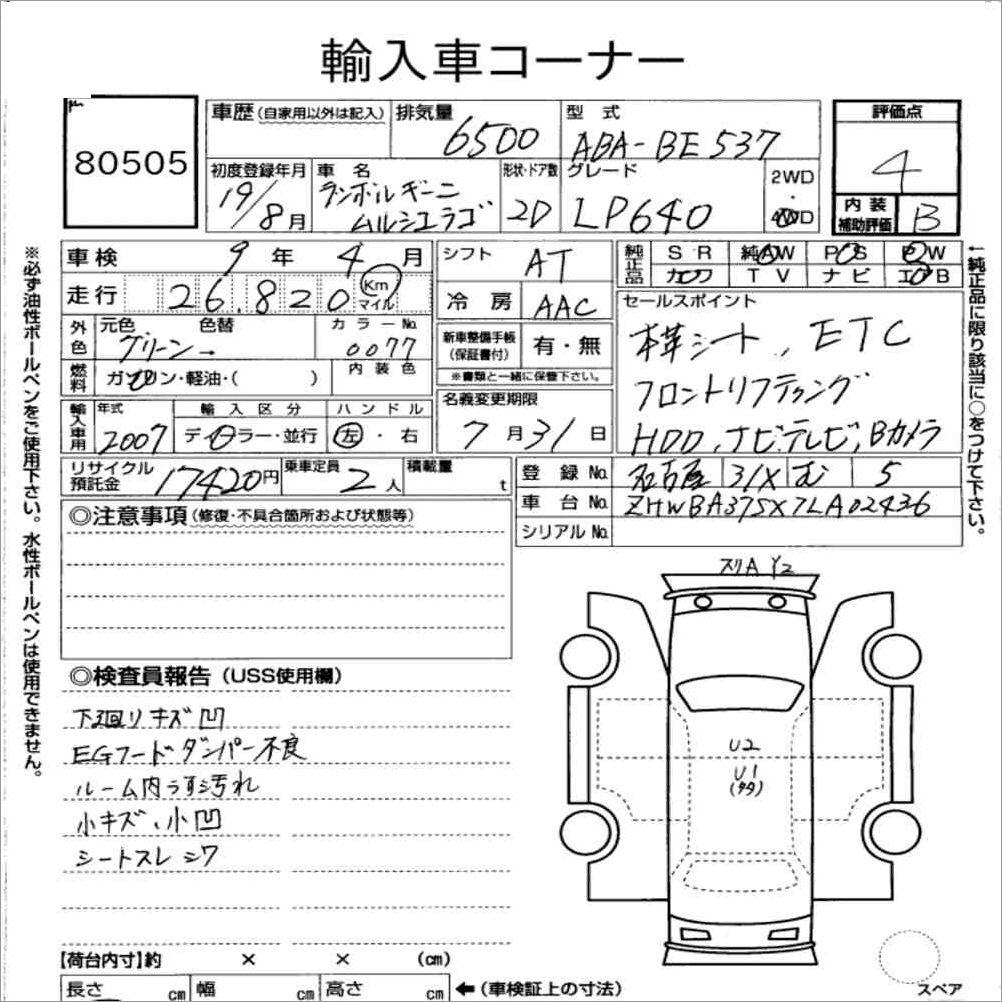 輸入車コーナー
80505
車歴(自家用以外は記入)
排気量 6500
型式 ABA-BE537
評価点 4
初度登録年月 19/8月
車名 ランボルギーニ ムルシエラゴ
形状・ドア数 2D
グレード LP640
2WD
4WD
内装補助評価 B
車検 9年 4月
シフト AT
純正品 SR 純AW PS PW
カワ TV ナビ エB
走行 26,820 Km マイル
冷房 AAC
セールスポイント
本革シート、ETC
フロントリフティング
HDD、ナビ、テレビ、Bカメラ
外色 元色 グリーン 色替
カラーNo. 0077
新車整備手帳(保証書付) 有・無
※書類と一緒に保管下さい。
燃料 ガソリン・軽油・( )
内装色
名義変更期限
7月31日
輸入車用 年式 2007
輸入区分 ディーラー・並行
ハンドル 左・右
リサイクル預託金 17420円
乗車定員 2人
積載量 t
登録No. 名古屋 31X む 5
車台No. ZHWBA37SX7LA02436
シリアルNo.
◎注意事項(修復・不具合箇所および状態等)
◎検査員報告(USS使用欄)
下廻りキズ凹
EGフードダンパー不良
ルーム内うす汚れ
小キズ、小凹
シートスレシワ
スリA Y2
U2
U1
【荷台内寸】約 × × (cm)
長さ cm 幅 cm 高さ cm ←(車検証上の寸法)
スペア
※必ず油性ボールペンをご使用下さい。水性ボールペンは使用できません。
←純正品に限り該当に○をつけて下さい。